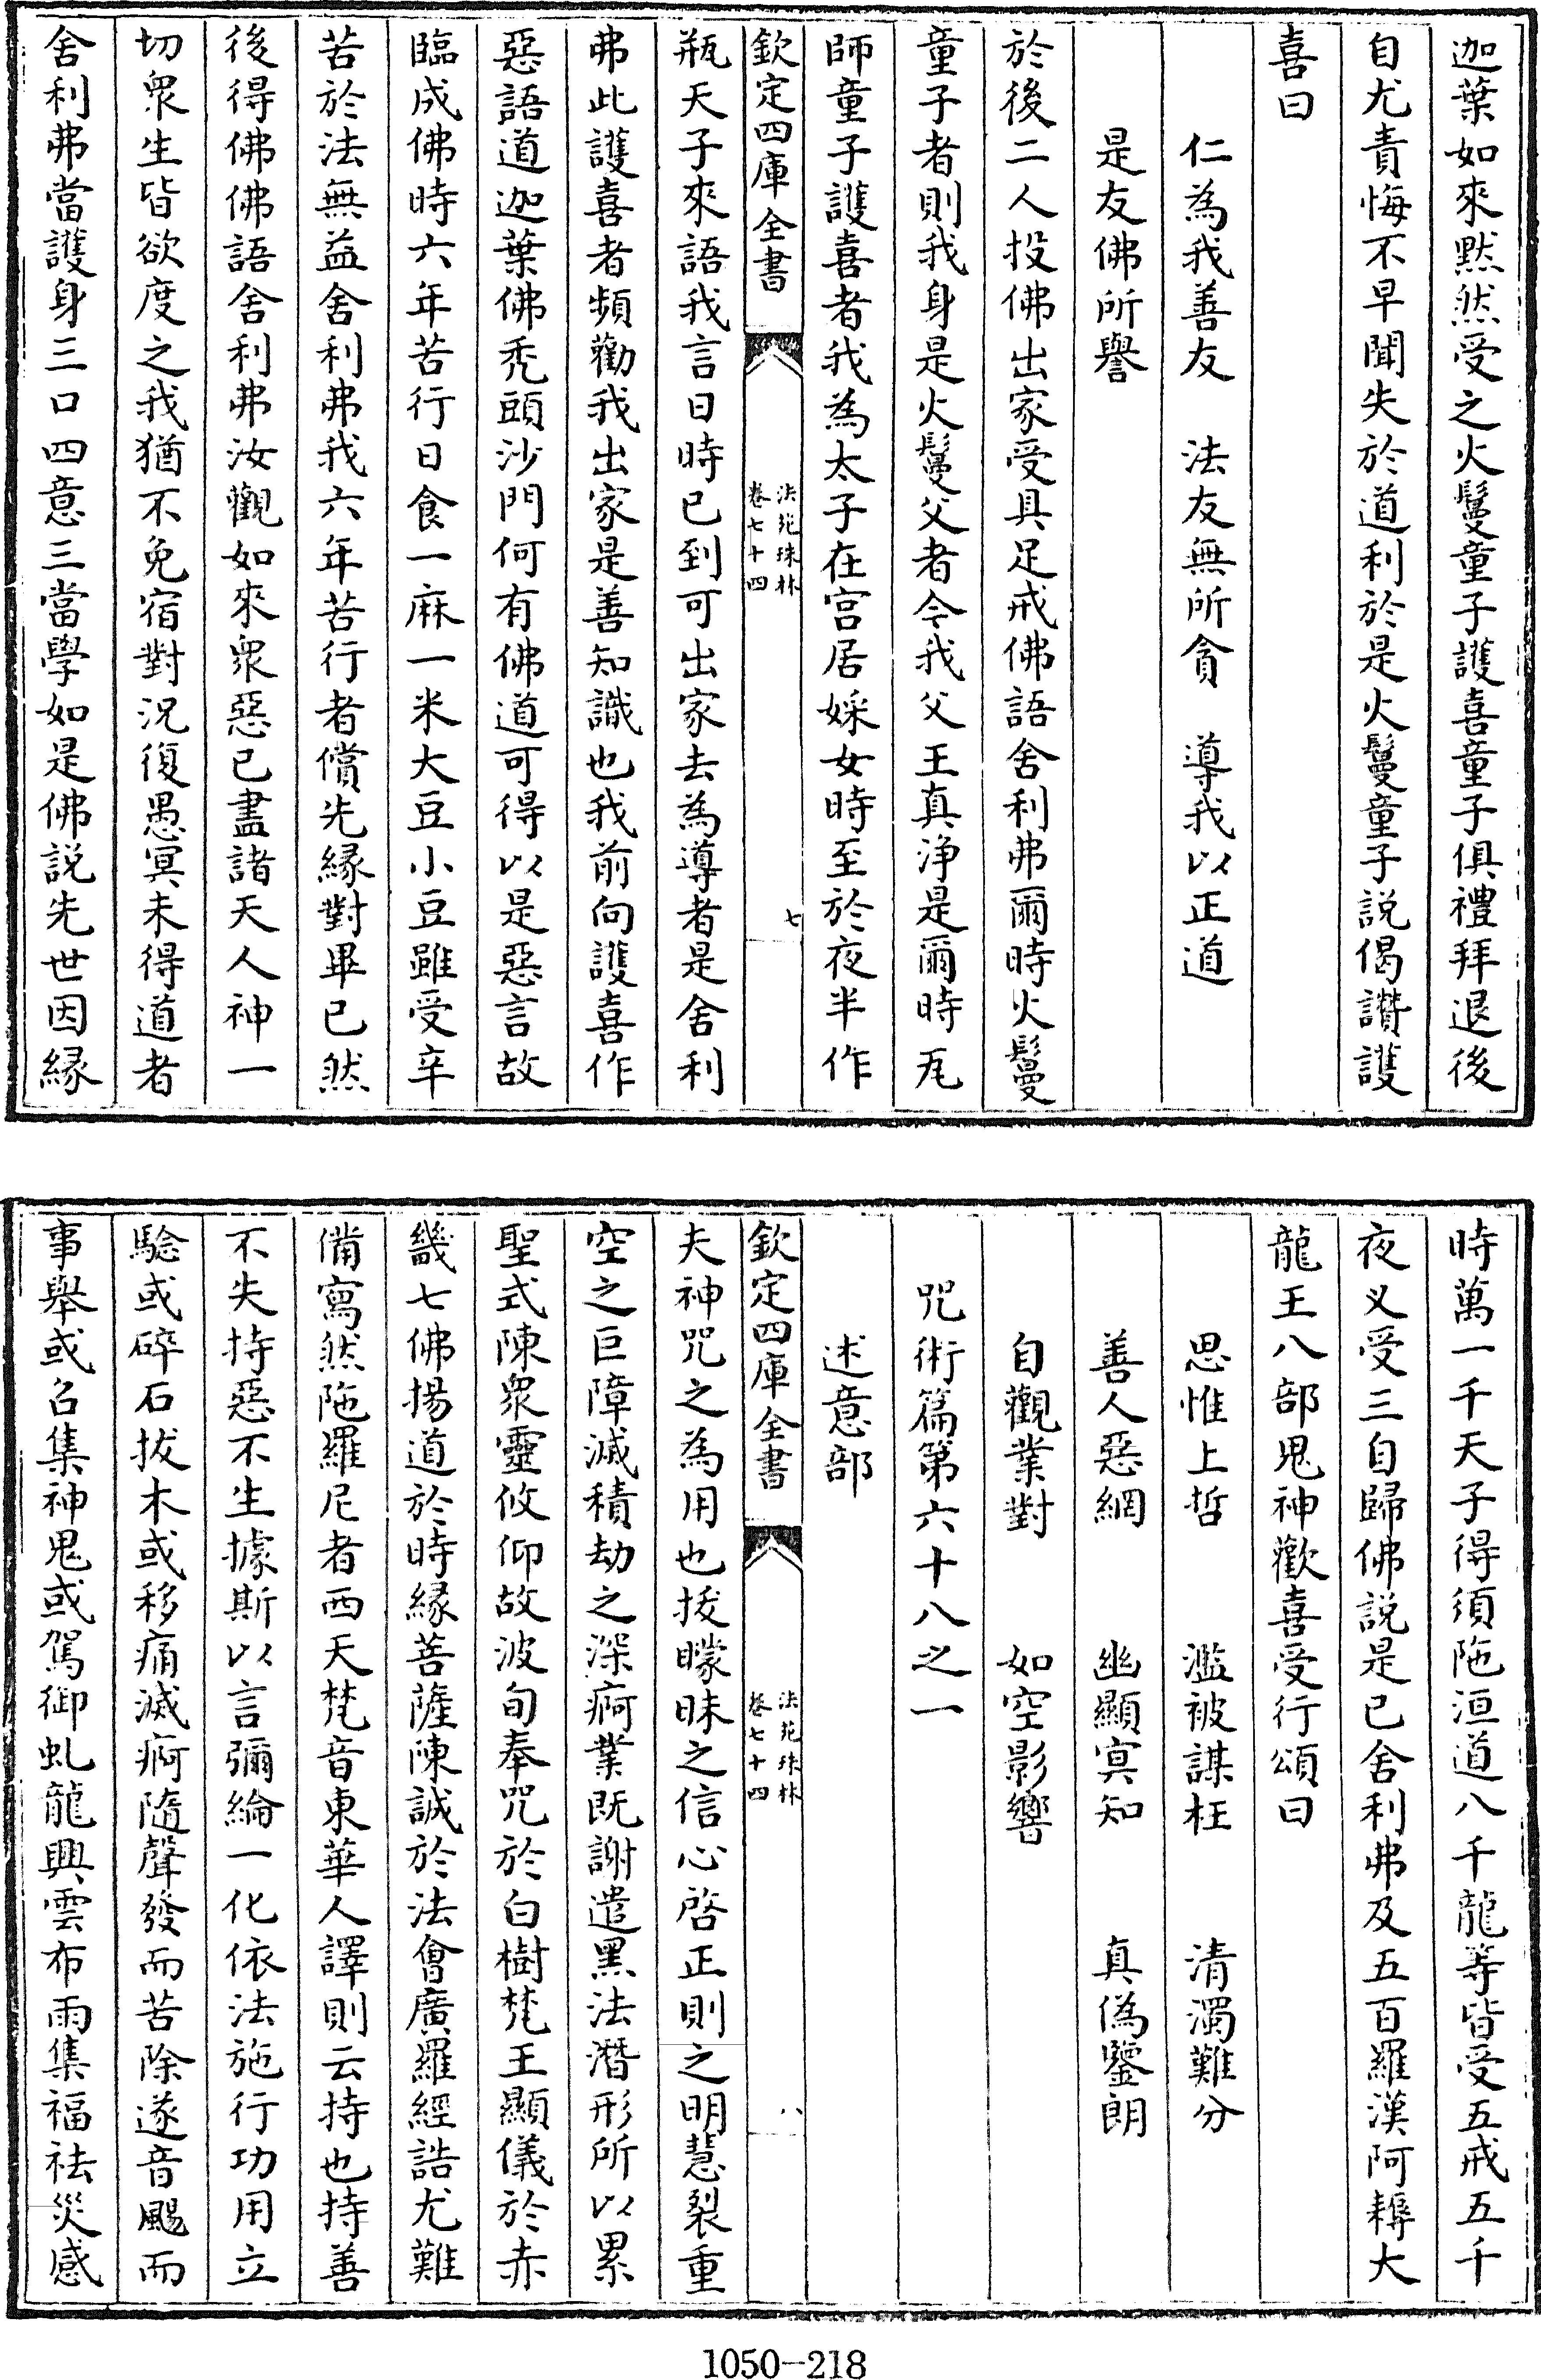 迦葉如來黙然受之火鬘童子護喜童子俱禮拜退後
自尤責悔不早聞失於道利於是火鬘童子説偈讚護
喜曰
仁為我善友　法友無所貪　導我以正道
是友佛所譽
於後二人投佛出家受具足戒佛語舍利弗爾時火鬘
童子者則我身是火鬘父者今我父王真浄是爾時瓦
師童子護喜者我為太子在宫居婇女時至於夜半作
欽定四庫全書
法苑珠林
卷七十四
七
瓶天子來語我言日時已到可出家去為導者是舍利
弗此護喜者頻勸我出家是善知識也我前向護喜作
惡語道迦葉佛禿頭沙門何有佛道可得以是惡言故
臨成佛時六年苦行日食一麻一米大豆小豆雖受辛
苦於法無益舍利弗我六年苦行者償先緣對畢已然
後得佛佛語舍利弗汝觀如來衆惡已盡諸天人神一
切衆生皆欲度之我猶不免宿對況復愚冥未得道者
舍利弗當護身三口四意三當學如是佛説先世因緣
時萬一千天子得須陁洹道八千龍等皆受五戒五千
夜义受三自歸佛説是已舍利弗及五百羅漢阿耨大
龍王八部鬼神歡喜受行頌曰
思惟上哲　濫被謀枉　清濁難分
善人惡網　幽顯冥知　真偽鑒朗
自觀業對　如空影響
咒術篇第六十八之一
述意部
欽定四庫全書
法苑珠林
卷七十四
八
夫神咒之為用也拔矇昧之信心啓正則之明慧裂重
空之巨障滅積劫之深痾業既謝遣黑法潛形所以累
聖式陳衆靈攸仰故波旬奉咒於白樹梵王顯儀於赤
畿七佛揚道於時緣菩薩陳誠於法會廣羅經誥尤難
備寫然陁羅尼者西天梵音東華人譯則云持也持善
不失持惡不生據斯以言彌綸一化依法施行功用立
驗或碎石拔木或移痛滅痾隨聲發而苦除遂音颺而
事舉或召集神鬼或駕御虬龍興雲布雨集福祛災感
1050-218